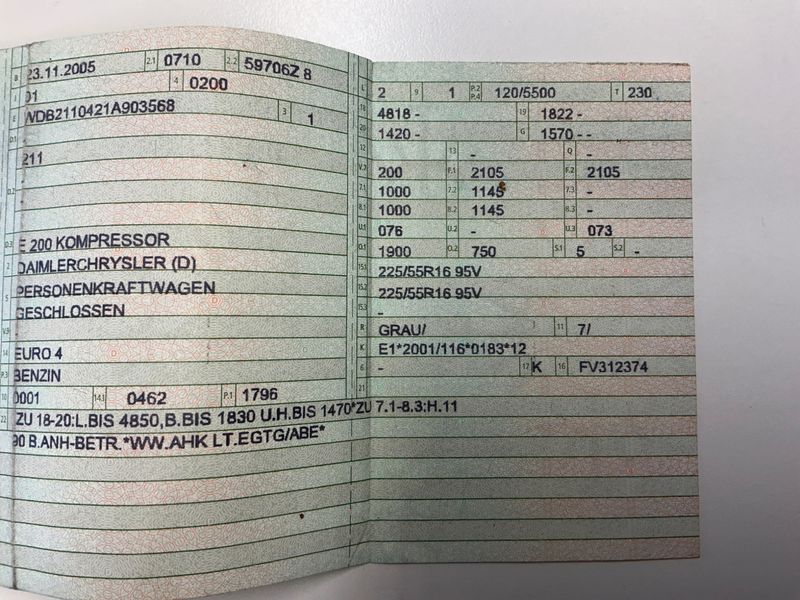 B 23.11.2005 2.1 0710 2.2 59706Z 8
01 4 0200
E WDB2110421A903568 3 1
D.1
211
D.2
D.3 E 200 KOMPRESSOR
2 DAIMLERCHRYSLER (D)
5 PERSONENKRAFTWAGEN
GESCHLOSSEN
V.9
14 EURO 4
P.3 BENZIN
10 0001 14.1 0462 P.1 1796
22 ZU 18-20:L.BIS 4850,B.BIS 1830 U.H.BIS 1470*ZU 7.1-8.3:H.11
90 B.ANH-BETR.*WW.AHK LT.EGTG/ABE*
L 2 9 1 P.2 P.4 120/5500 T 230
18 4818 - 19 1822 -
20 1420 - G 1570 - -
12 13 - Q -
V.7 200 F.1 2105 F.2 2105
7.1 1000 7.2 1145 7.3 -
8.1 1000 8.2 1145 8.3 -
U.1 076 U.2 - U.3 073
O.1 1900 O.2 750 S.1 5 S.2 -
15.1 225/55R16 95V
15.2 225/55R16 95V
15.3 -
R GRAU/ 11 7/
K E1*2001/116*0183*12
6 - 17 K 16 FV312374
21